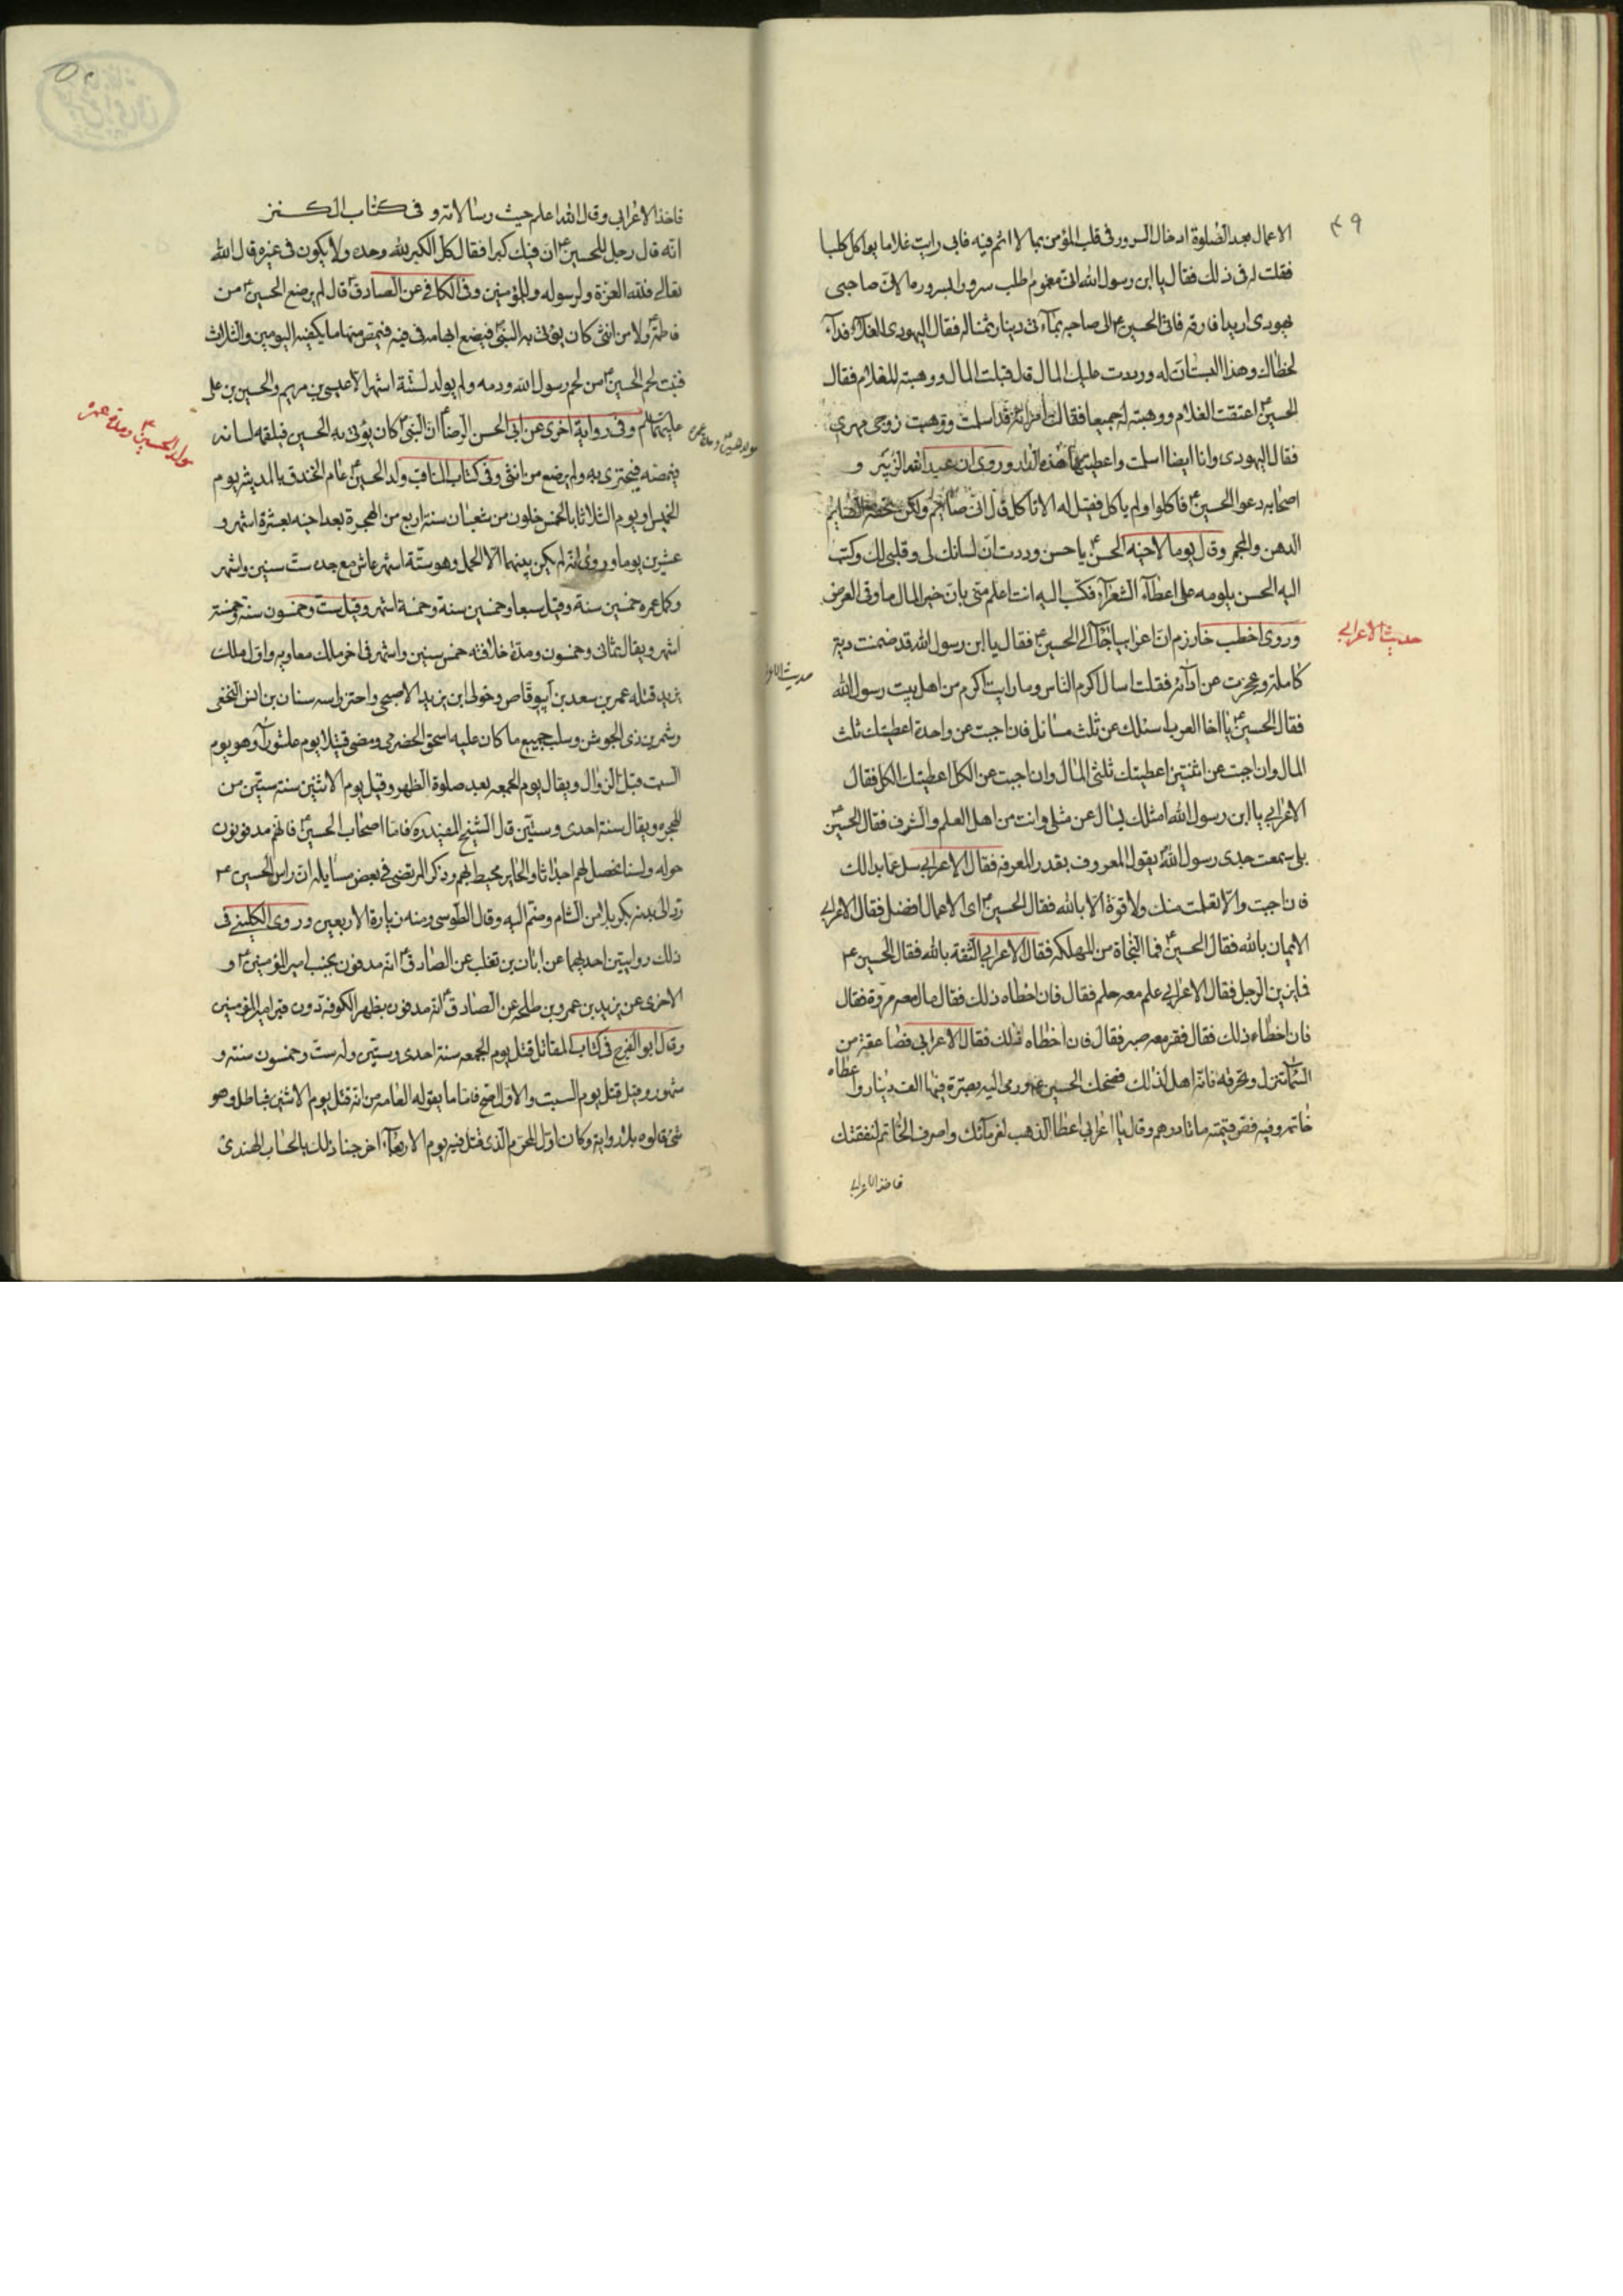 ٤٩
الاعمال بعد الصلوة ادخال السرور فى قلب المؤمن بما لا اثم فيه فانى رايت غلاما يواكل كلبا
فقلت له فى ذلك فقال يا ابن رسول الله انى مغموم اطلب سرورا بسروره لان صاحبى
يهودى اريد افارقه فاتى الحسين ع الى صاحبه بمأتى دينار ثمنا له فقال اليهودى الغلام فداء
لخطاك وهذا البستان له ورددت عليك المال قال قبلت المال ووهبته للغلام فقال
الحسين ع اعتقت الغلام ووهبته له جميعا فقالت امراته قد اسلمت ووهبت زوجى مهرى
فقال اليهودى وانا ايضا اسلمت واعطيتها هذه الدار وروى ان عبد الله الزبير و
اصحابه دعوا الحسين ع فاكلوا ولم ياكل فقيل له الا تاكل قال انى صائم ولكن تحفة الصايم
الدهن والمجمر وقال يوما لاخيه الحسن ع يا حسن وددت ان لسانك لى وقلبى لك وكتب
اليه الحسن يلومه على اعطاء الشعراء فكتب اليه انت اعلم منى بان خير المال ما وقى العرض
حديث الاعرابى
وروى اخطب خارزم ان اعرابيا جاء الى الحسين ع فقال يا ابن رسول الله قد ضمنت دية
كاملة وعجزت عن ادائه فقلت اسال اكرم الناس وما رايت اكرم من اهل بيت رسول الله
فقال الحسين ع يا اخا العرب اسئلك عن ثلث مسائل فان اجبت عن واحدة اعطيتك ثلث
المال وان اجبت عن اثنتين اعطيتك ثلثى المال وان اجبت عن الكل اعطيتك الكل فقال
الاعرابى يا ابن رسول الله امثلك يسال عن مثلى وانت من اهل العلم والشرف فقال الحسين ع
بلى سمعت جدى رسول الله يقول المعروف بقدر المعرفه فقال الاعرابى سل عما بدالك
فان اجبت والا تعلمت منك ولا قوة الا بالله فقال الحسين ع اى الاعمال افضل فقال الاعرابى
الايمان بالله فقال الحسين ع فما النجاة من المهلكه فقال الاعرابى الثقة بالله فقال الحسين ع
فما يزين الرجل فقال الاعرابى علم معه حلم فقال فان اخطاه ذلك فقال مال معه مروة فقال
فان اخطاه ذلك فقال فقر معه صبر فقال فان اخطاه ذلك فقال الاعرابى فصاعقة من
السماء تنزل وتحرقه فانه اهل لذلك فضحك الحسين ع ورمى اليه بصرة فيها الف دينار واعطاه
خاتمه وفيه فص قيمته مائتا درهم وقال يا اعرابى اعط الذهب لغرمائك واصرف الخاتم لنفقتك
فاخذ الاعرابى
فاخذ الاعرابى وقال الله اعلم حيث رسالاته و فى كتاب الكنز
انه قال رجل للحسين ع ان فيك كبرا فقال كل الكبر لله وحده ولا يكون فى غيره قال الله
تعالى فلله العزة ولرسوله وللمؤمنين وفى الكافى عن الصادق ع قال لم يرضع الحسين ع من
فاطمة ع ولا من انثى كان يؤتى به النبى فيضع ابهامه فى فيه فيمص منها ما يكفيه اليومين والثلاث
فنبت لحم الحسين ع من لحم رسول الله ودمه ولم يولد لستة اشهر الا عيسى بن مريم والحسين بن على
مولد الحسين ع ومدة عمره
عليهما السلم وفى رواية اخرى عن ابى الحسن الرضا ع ان النبى كان يؤتى به الحسين فيلقمه لسانه
فيمصه فيجتزى به ولم يرضع من انثى وفى كتاب المناقب ولد الحسين ع عام الخندق بالمدينه يوم
الخميس او يوم الثلاثا بالخمس خلون من شعبان سنة اربع من الهجرة بعد اخيه بعشرة اشهر و
عشرين يوما وروى انه لم يكن بينهما الا الحمل وهو ستة اشهر عاش مع جده ست سنين واشهر
وكل عمره خمسين سنة وقيل سبعا وخمسين سنة وخمسة اشهر وقيل ست وخمسون سنة وخمسة
اشهر ويقال ثمانى وخمسون ومدة خلافته خمس سنين واشهر فى اخر ملك معاويه واول ملك
يزيد قتله عمر بن سعد بن ابو قاص وخولى ابن يزيد الاصبحى واحتز راسه سنان بن انس النخعى
وشمر بن ذى الجوشن وسلب جميع ما كان عليه اسحق الحضرمى ومضى قتيلا يوم عاشوراء وهو يوم
السبت قبل الزوال ويقال يوم الجمعه بعد صلوة الظهر وقيل يوم الاثنين سنه ستين من
الهجره ويقال سنة احدى وستين قال الشيخ المفيد ره فاما اصحاب الحسين ع فانهم مدفونون
حوله ولسنا نحصل لهم اجداثا والحاير محيط بهم وذكر المرتضى فى بعض مسايله ان راس الحسين ع
رد الى بدنه بكربلا من الشام وضم اليه وقال الطوسى ومنه زيارة الاربعين وروى الكلينى فى
ذلك روايتين احديهما عن ابان بن تغلب عن الصادق ع انه مدفون بجنب امير المؤمنين ع و
الاخرى عن يزيد بن عمرو بن طلحه عن الصادق ع انه مدفون بظهر الكوفه دون قبر امير المؤمنين
وقال ابو الفرج فى كتاب المقاتل قتل يوم الجمعه سنة احدى وستين وله ست وخمسون سنة و
شهور وقيل قتل يوم السبت والاول اصح فاما ما يقوله العامة من انه قتل يوم الاثنين فباطل وهو
شئ قالوه بلا رواية وكان اول المحرم الذى قتل فيه يوم الاربعاء اخرجنا ذلك بالحساب الهندى